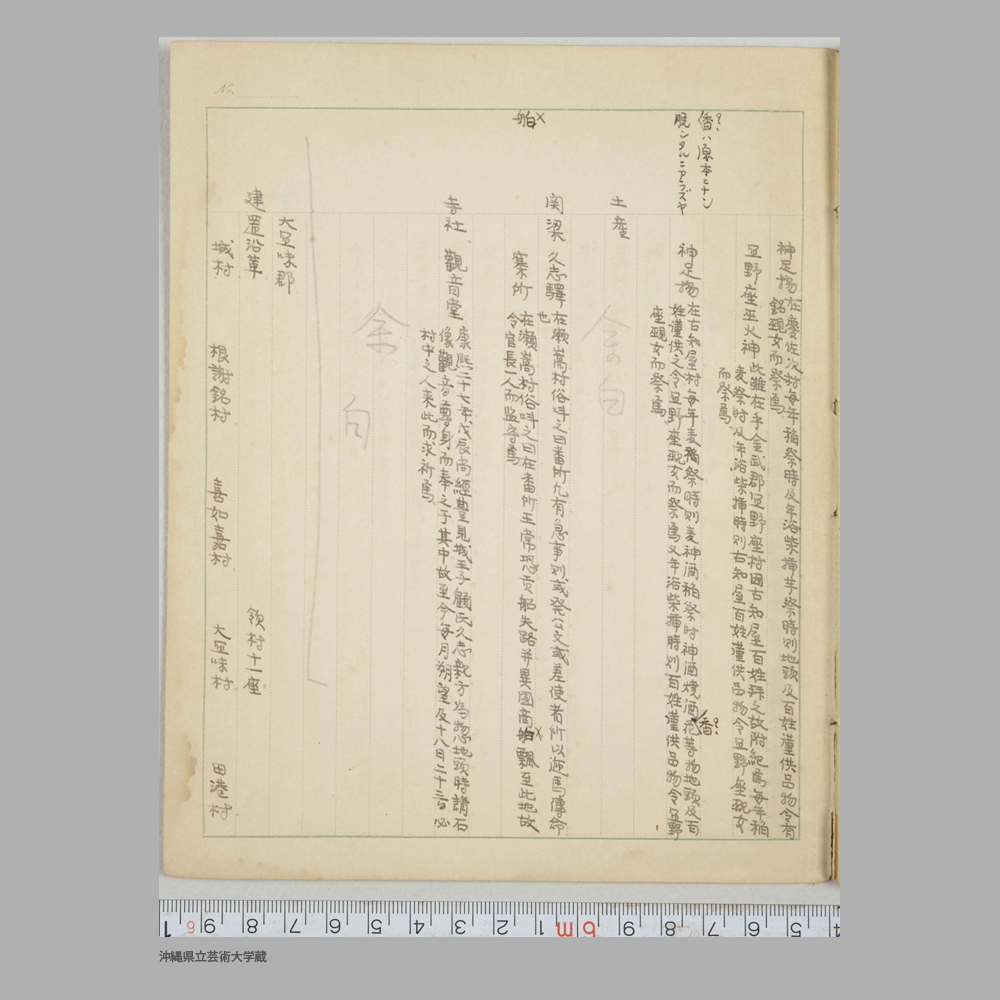 香ハ原本ニナシ
脱シタルニアラズヤ
神足揚 在慶佐次村毎年稲祭時及年浴柴揷芋祭時則地頭及百姓謹供品物令有
銘覡女而祭焉
宜野座巫火神 此雖在乎金武郡宜野座村因古知屋百姓拜之故附紀焉毎年稲
麦祭時及年浴柴揷時則古知屋百姓謹供品物令宜野座覡女
而祭焉
神足揚 在古知屋村毎年麦稲祭時則麦神酒稲祭時神酒焼酒花等物地頭及百
姓謹供之令宜野座覡女而祭焉又年浴柴揷時則百姓謹供品物令宜野
座覡女而祭焉
香
土産
余白
関梁 久志驛 在瀬嵩村俗呌之曰番所凡有急事則或発公文或差使者所以通馬傳命
也
寨所 在瀬嵩村俗呌之曰在番所王常恐貢船失路并異國商舶飄至此地故
令官長一人而監守焉
舶
寺社 觀音堂 康熙二十七年戊辰尚經豊見城王子顧氏久志親方為惣地頭時請石
像觀音尊身而奉之于其中故至今毎月朔望及十八日二十三日必
村中之人来此而求祈焉
余白
大宜味郡
建置沿革 領村十一座
城村 根謝銘村 喜如嘉村 大宜味村 田港村
No.
1 9 8 7 6 5 4 3 2 1 m 9 8 7 6 5 4
沖縄県立芸術大学蔵